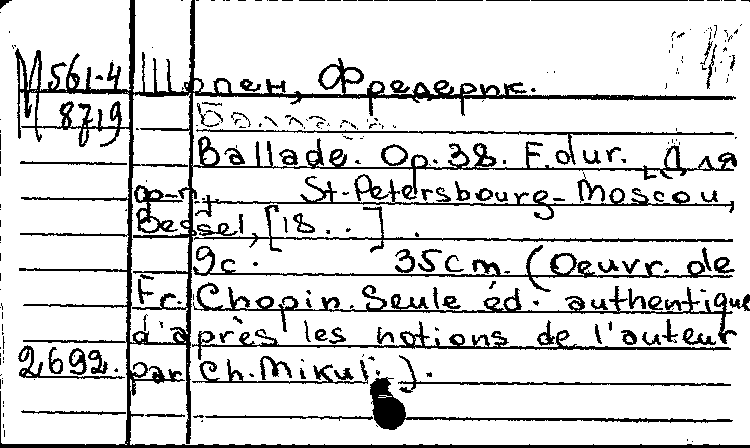 М 561-4 Шопен, Фредерик.
8719 Баллада.
Ballade. Op. 38. F.dur. [Для
ф-п].  St-Petersbourg-Moscou,
Bessel, [18..].
9с.  35cm. (Oeuvr. de
Fr. Chopin. Seule éd. authentique
d'après les notions de l'auteur
2692. par Ch. Mikuli).